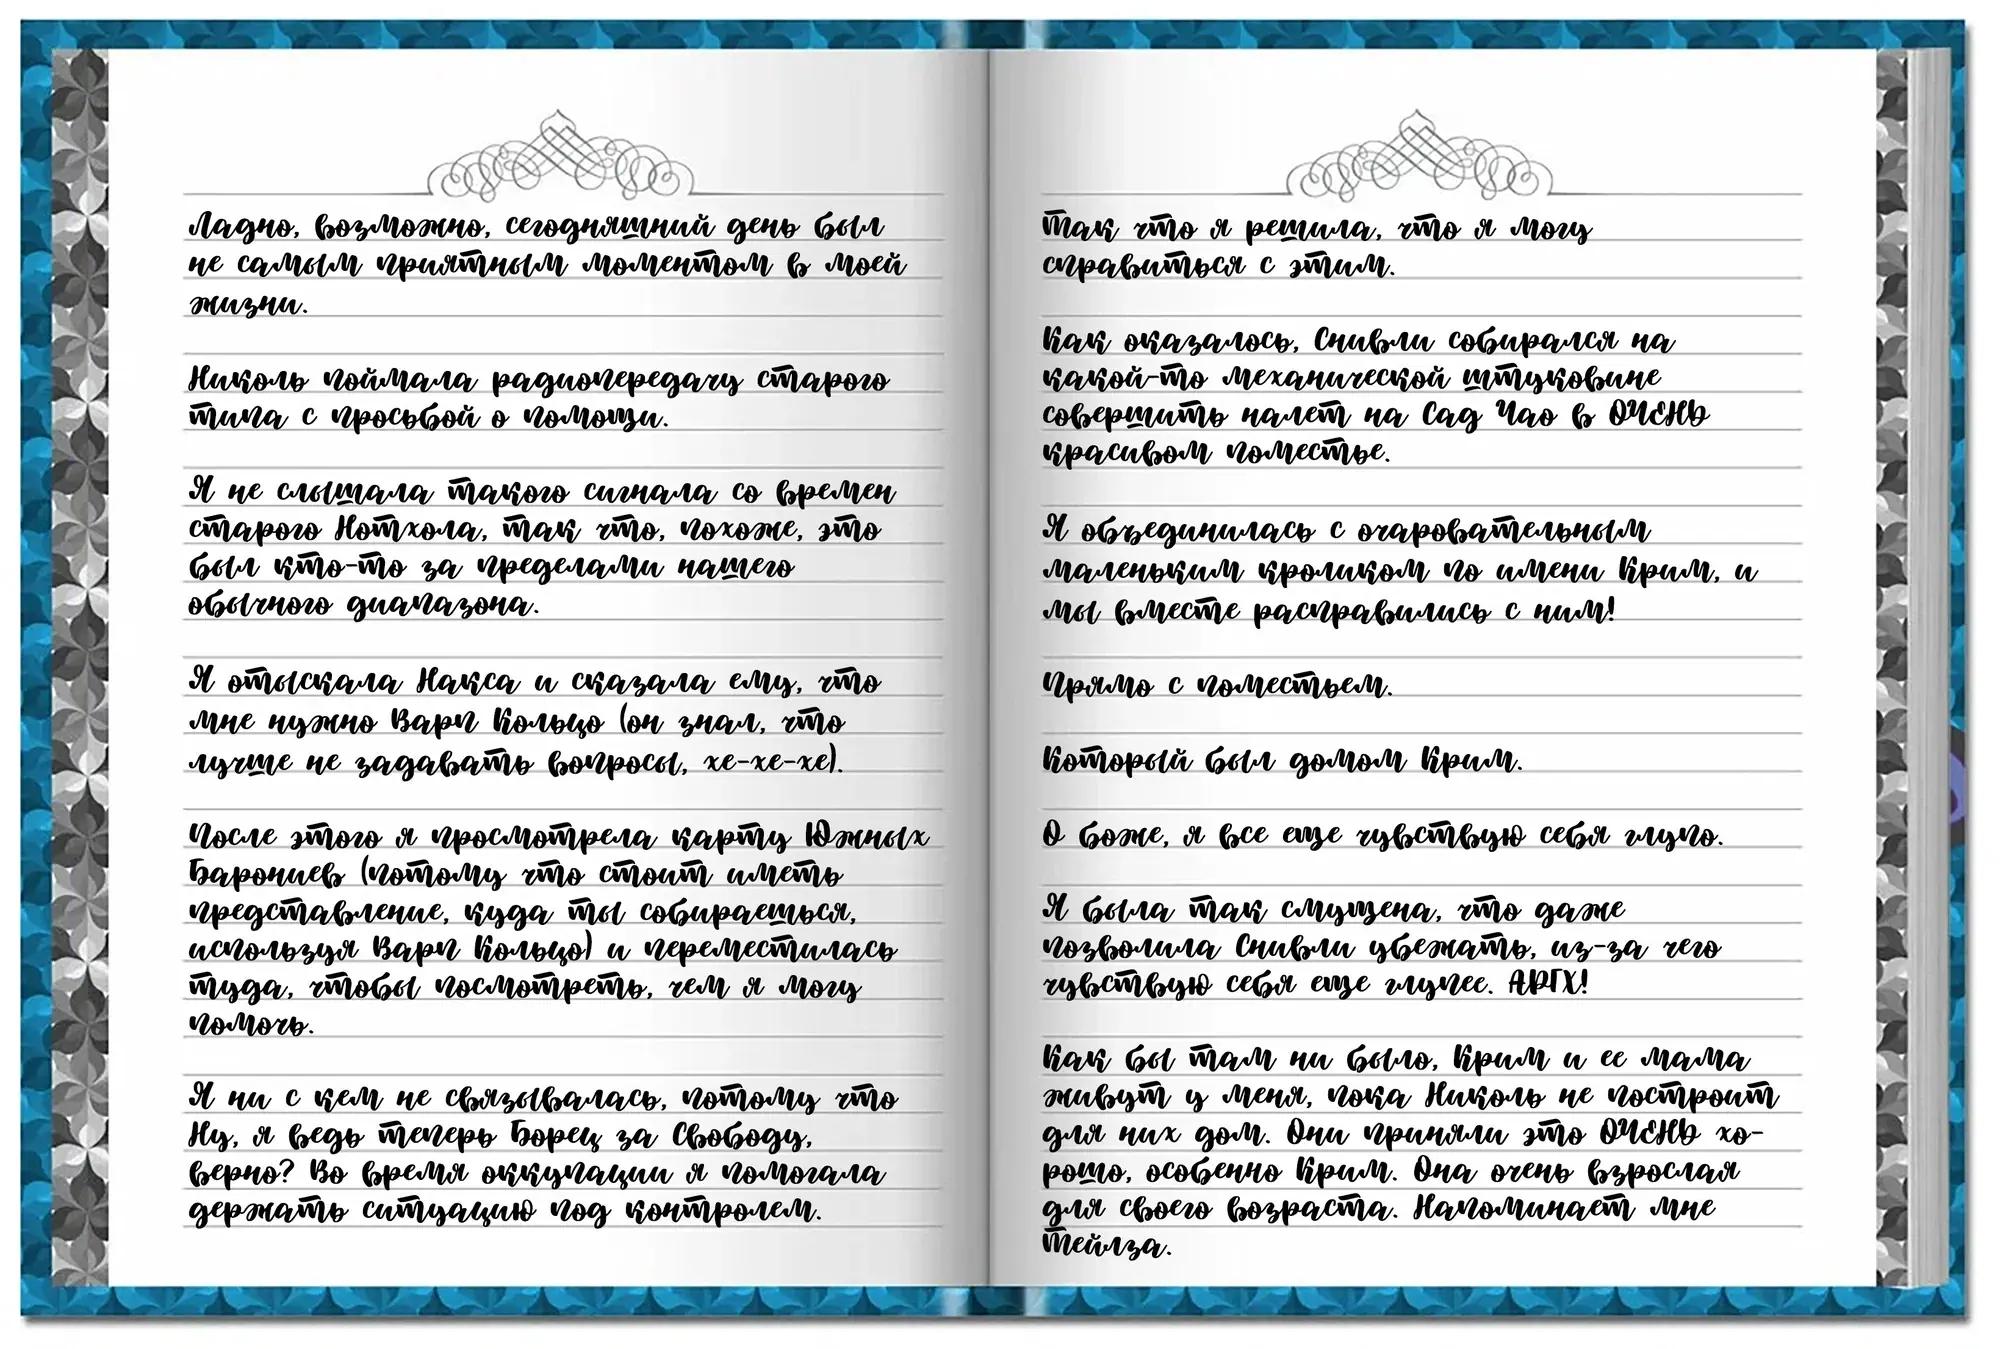 Ладно, возможно, сегодняшний день был
не самым приятным моментом в моей
жизни.
Николь поймала радиопередачу старого
типа с просьбой о помощи.
Я не слышала такого сигнала со времен
старого Нотхола, так что, похоже, это
был кто-то за пределами нашего
обычного диапазона.
Я отыскала Накса и сказала ему, что
мне нужно Варп Кольцо (он знал, что
лучше не задавать вопросы, хе-хе-хе).
После этого я просмотрела карту Южных
Барониев (потому что стоит иметь
представление, куда ты собираешься,
используя Варп Кольцо) и переместилась
туда, чтобы посмотреть, чем я могу
помочь.
Я ни с кем не связывалась, потому что
Ну, я ведь теперь Борец за Свободу,
верно? Во время оккупации я помогала
держать ситуацию под контролем.
Так что я решила, что я могу
справиться с этим.
Как оказалось, Снивли собирался на
какой-то механической штуковине
совершить налет на Сад Чао в ОЧЕНЬ
красивом поместье.
Я объединилась с очаровательным
маленьким кроликом по имени Крим, и
мы вместе расправились с ним!
Прямо с поместьем.
Который был домом Крим.
О боже, я все еще чувствую себя глупо.
Я была так смущена, что даже
позволила Снивли убежать, из-за чего
чувствую себя еще глупее. АРГХ!
Как бы там ни было, Крим и ее мама
живут у меня, пока Николь не построит
для них дом. Они приняли это ОЧЕНЬ хо-
рошо, особенно Крим. Она очень взрослая
для своего возраста. Напоминает мне
Тейлза.